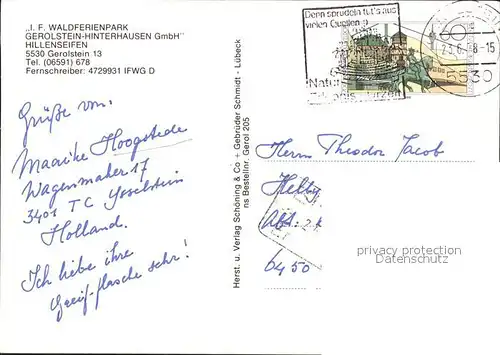 „I. F. WALDFERIENPARK
GEROLSTEIN-HINTERHAUSEN GmbH"
HILLENSEIFEN
5530 Gerolstein 13
Tel. (06591) 678
Fernschreiber: 4729931 IFWG D
Grüße von:
Maarike Hoogstede
Wagenmaker 17
3401 TC Ysselstein
Holland.
Ich liebe ihre
flasche sehr!
Herst. u. Verlag Schöning & Co + Gebrüder Schmidt · Lübeck
ns Bestellnr. Gerol 205
Denn sprudeln tut's aus
vielen Quellen
Natur
60
23.6. 8-15
5530
Herrn Theodor Jacob
Abt.
6450
privacy protection
Datenschutz